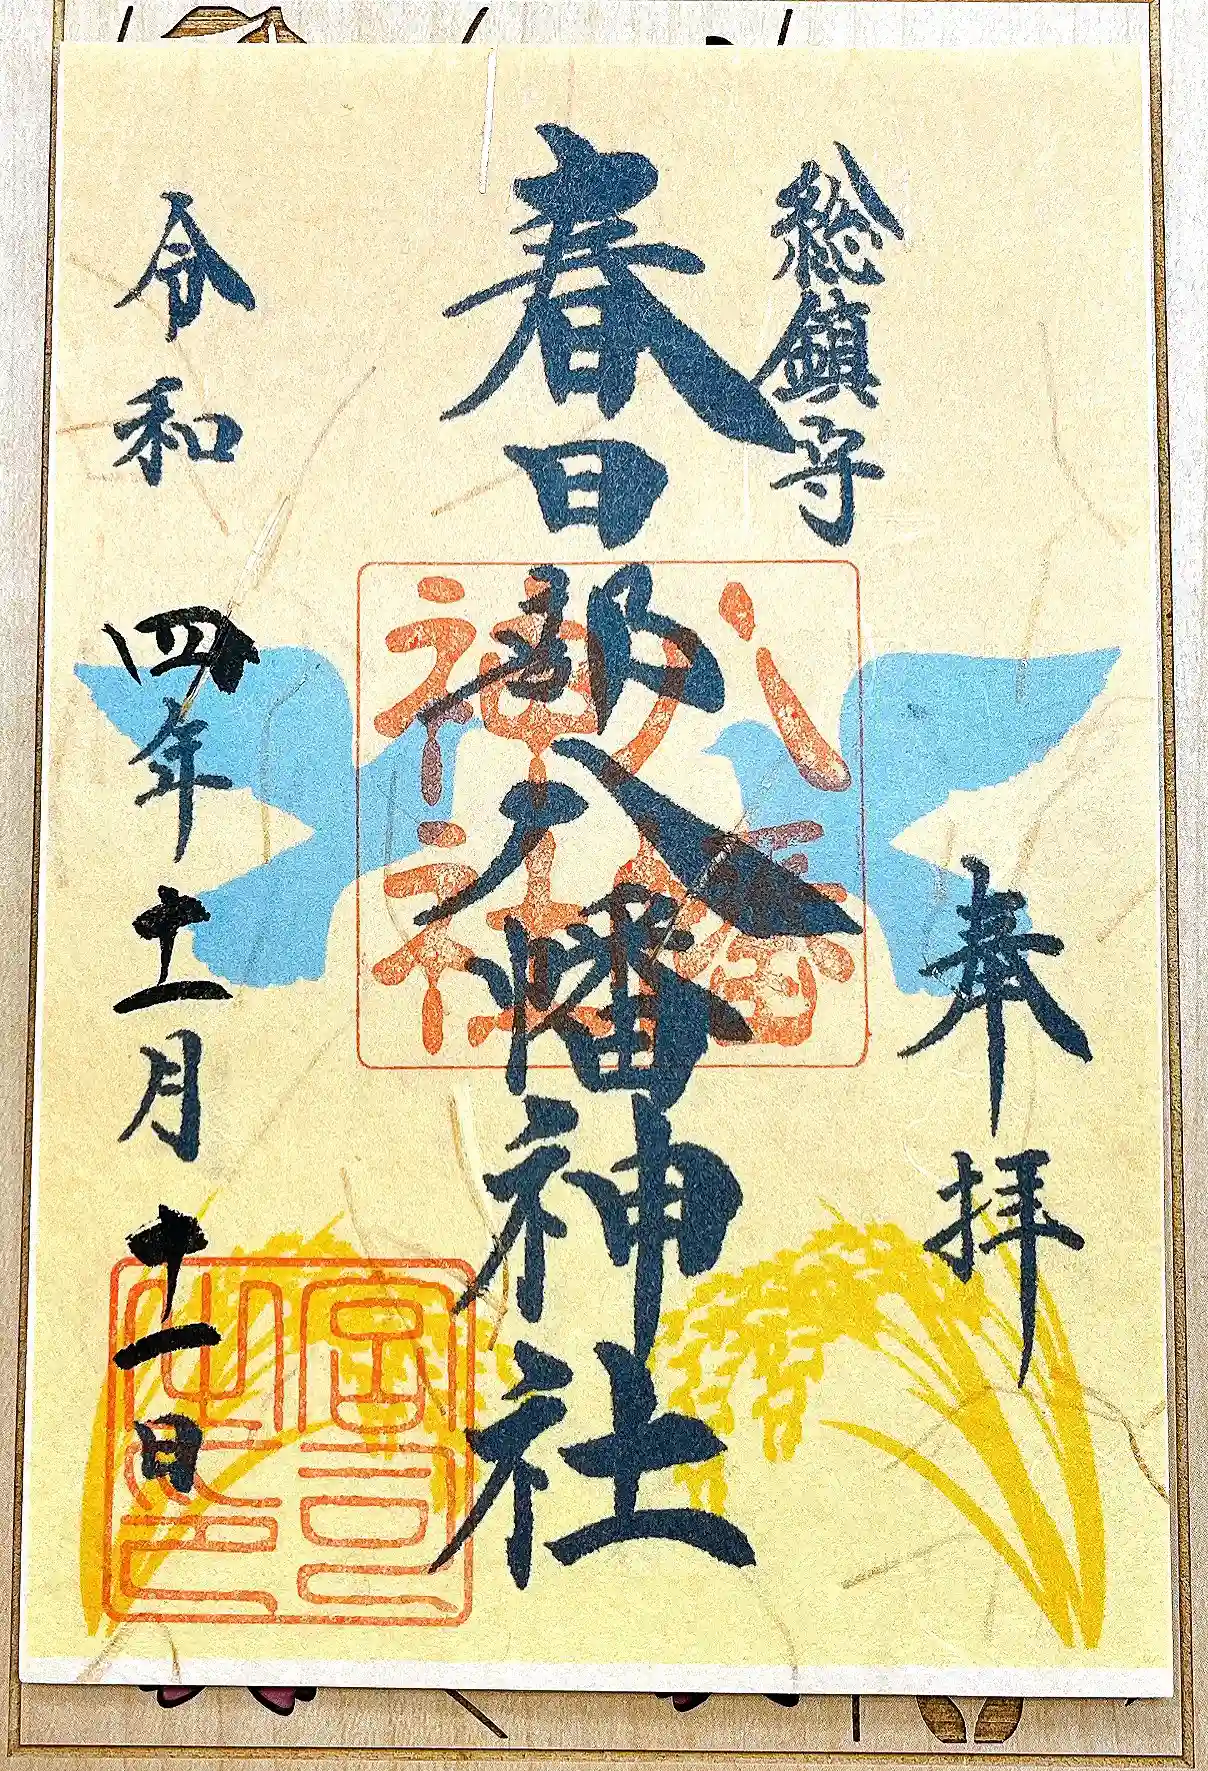 奉拝
総鎮守
春日部八幡神社
令和四年十一月十一日
八幡
神社
宮司
之印